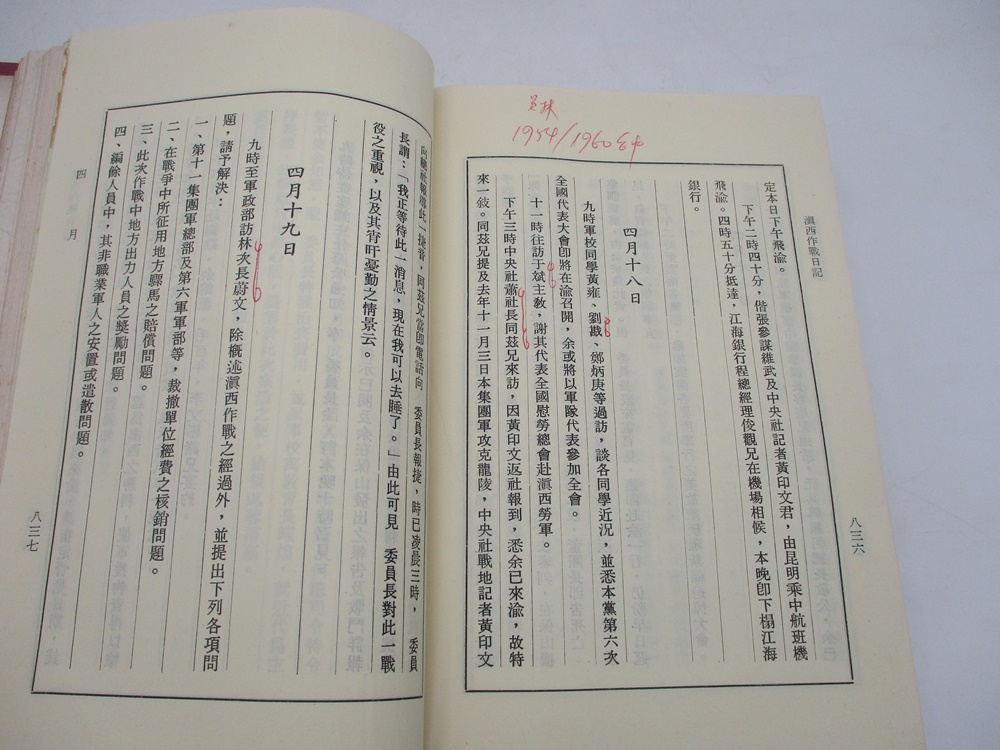 滇西作戰日記
八三六
1954/1960
定本日下午飛渝。
下午二時四十分，偕張參謀維武及中央社記者黃印文君，由昆明乘中航班機
飛渝。四時五十分抵達，江海銀行程總經理俊觀兄在機場相候，本晚卽下榻江海
銀行。
四月十八日
九時軍校同學黃雍、劉戡、鄭炳庚等過訪，談各同學近況，並悉本黨第六次
全國代表大會卽將在渝召開，余或將以軍隊代表參加全會。
十一時往訪于斌主教，謝其代表全國慰勞總會赴滇西勞軍。
下午三時中央社蕭社長同茲兄來訪，因黃印文返社報到，悉余已來渝，故特
來一敍。同茲兄提及去年十一月三日本集團軍攻克龍陵，中央社戰地記者黃印文
向總社報導此一捷音，同茲兄當卽電話向　委員長報捷，時已凌晨三時，　委員
長謂：「我正等待此一消息，現在我可以去睡了。」由此可見　委員長對此一戰
役之重視，以及其宵旰憂勤之情景云。
四月十九日
九時至軍政部訪林次長蔚文，除概述滇西作戰之經過外，並提出下列各項問
題，請予解決：
一、第十一集團軍總部及第六軍軍部等，裁撤單位經費之核銷問題。
二、在戰爭中所征用地方騾馬之賠償問題。
三、此次作戰中地方出力人員之獎勵問題。
四、編餘人員中，其非職業軍人之安置或遣散問題。
四　月
八三七